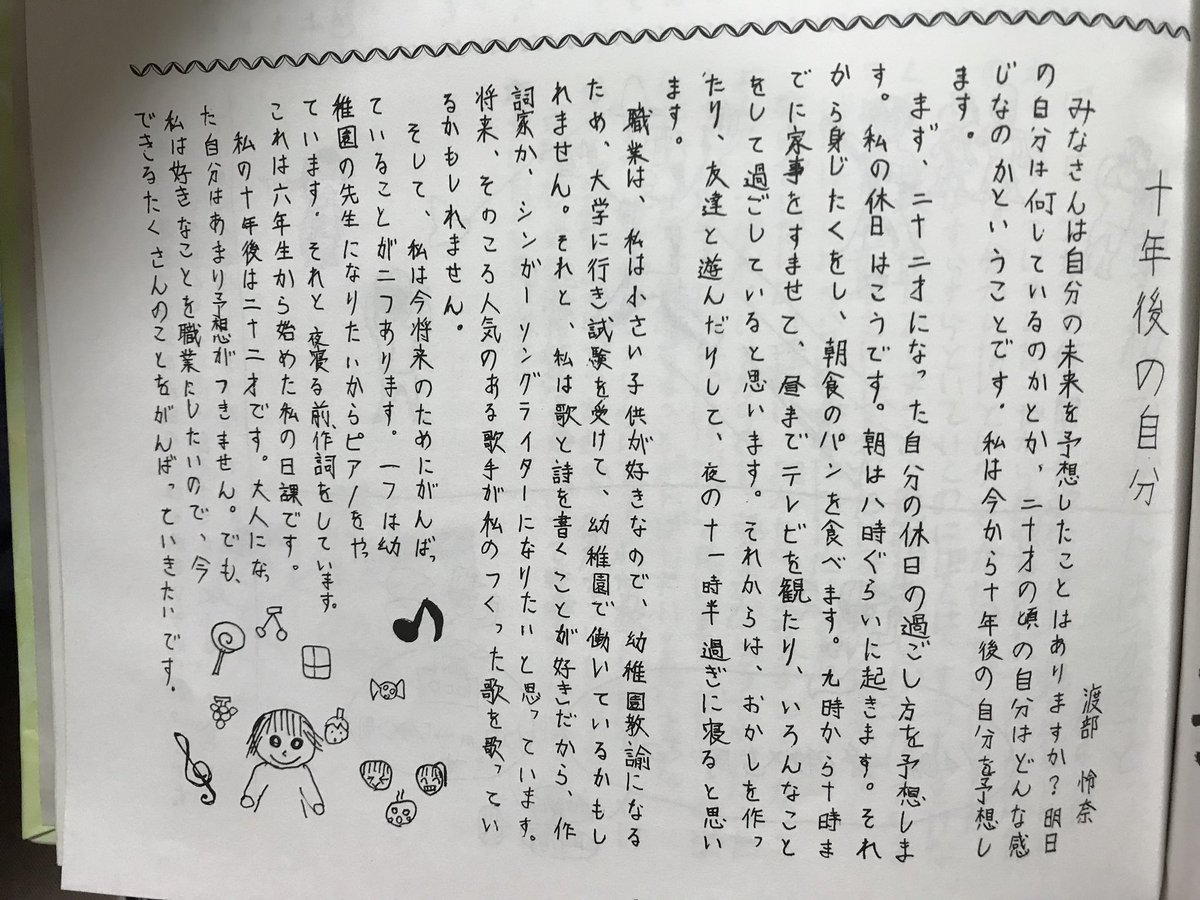 十年後の自分
渡部 怜奈
みなさんは自分の未来を予想したことはありますか？明日
の自分は何しているのかとか、二十才の頃の自分はどんな感
じなのかということです。私は今から十年後の自分を予想し
ます。
まず、二十二才になった自分の休日の過ごし方を予想しま
す。私の休日はこうです。朝は八時ぐらいに起きます。それ
から身じたくをし、朝食のパンを食べます。九時から十時ま
でに家事をすませて、昼までテレビを観たり、いろんなこと
をして過ごしていると思います。それからは、おかしを作っ
たり、友達と遊んだりして、夜の十一時半過ぎに寝ると思い
ます。
職業は、私は小さい子供が好きなので、幼稚園教諭になる
ため、大学に行き試験を受けて、幼稚園で働いているかもし
れません。それと、私は歌と詩を書くことが好きだから、作
詞家か、シンガーソングライターになりたいと思っています。
将来、そのころ人気のある歌手が私のつくった歌を歌ってい
るかもしれません。
そして、私は今将来のためにがんばっ
ていることが二つあります。一つは幼
稚園の先生になりたいからピアノをやっ
ています。それと夜寝る前、作詞をしています。
これは六年生から始めた私の日課です。
私の十年後は二十二才です。大人になっ
た自分はあまり予想がつきません。でも、
私は好きなことを職業にしたいので、今
できるたくさんのことをがんばっていきたいです。